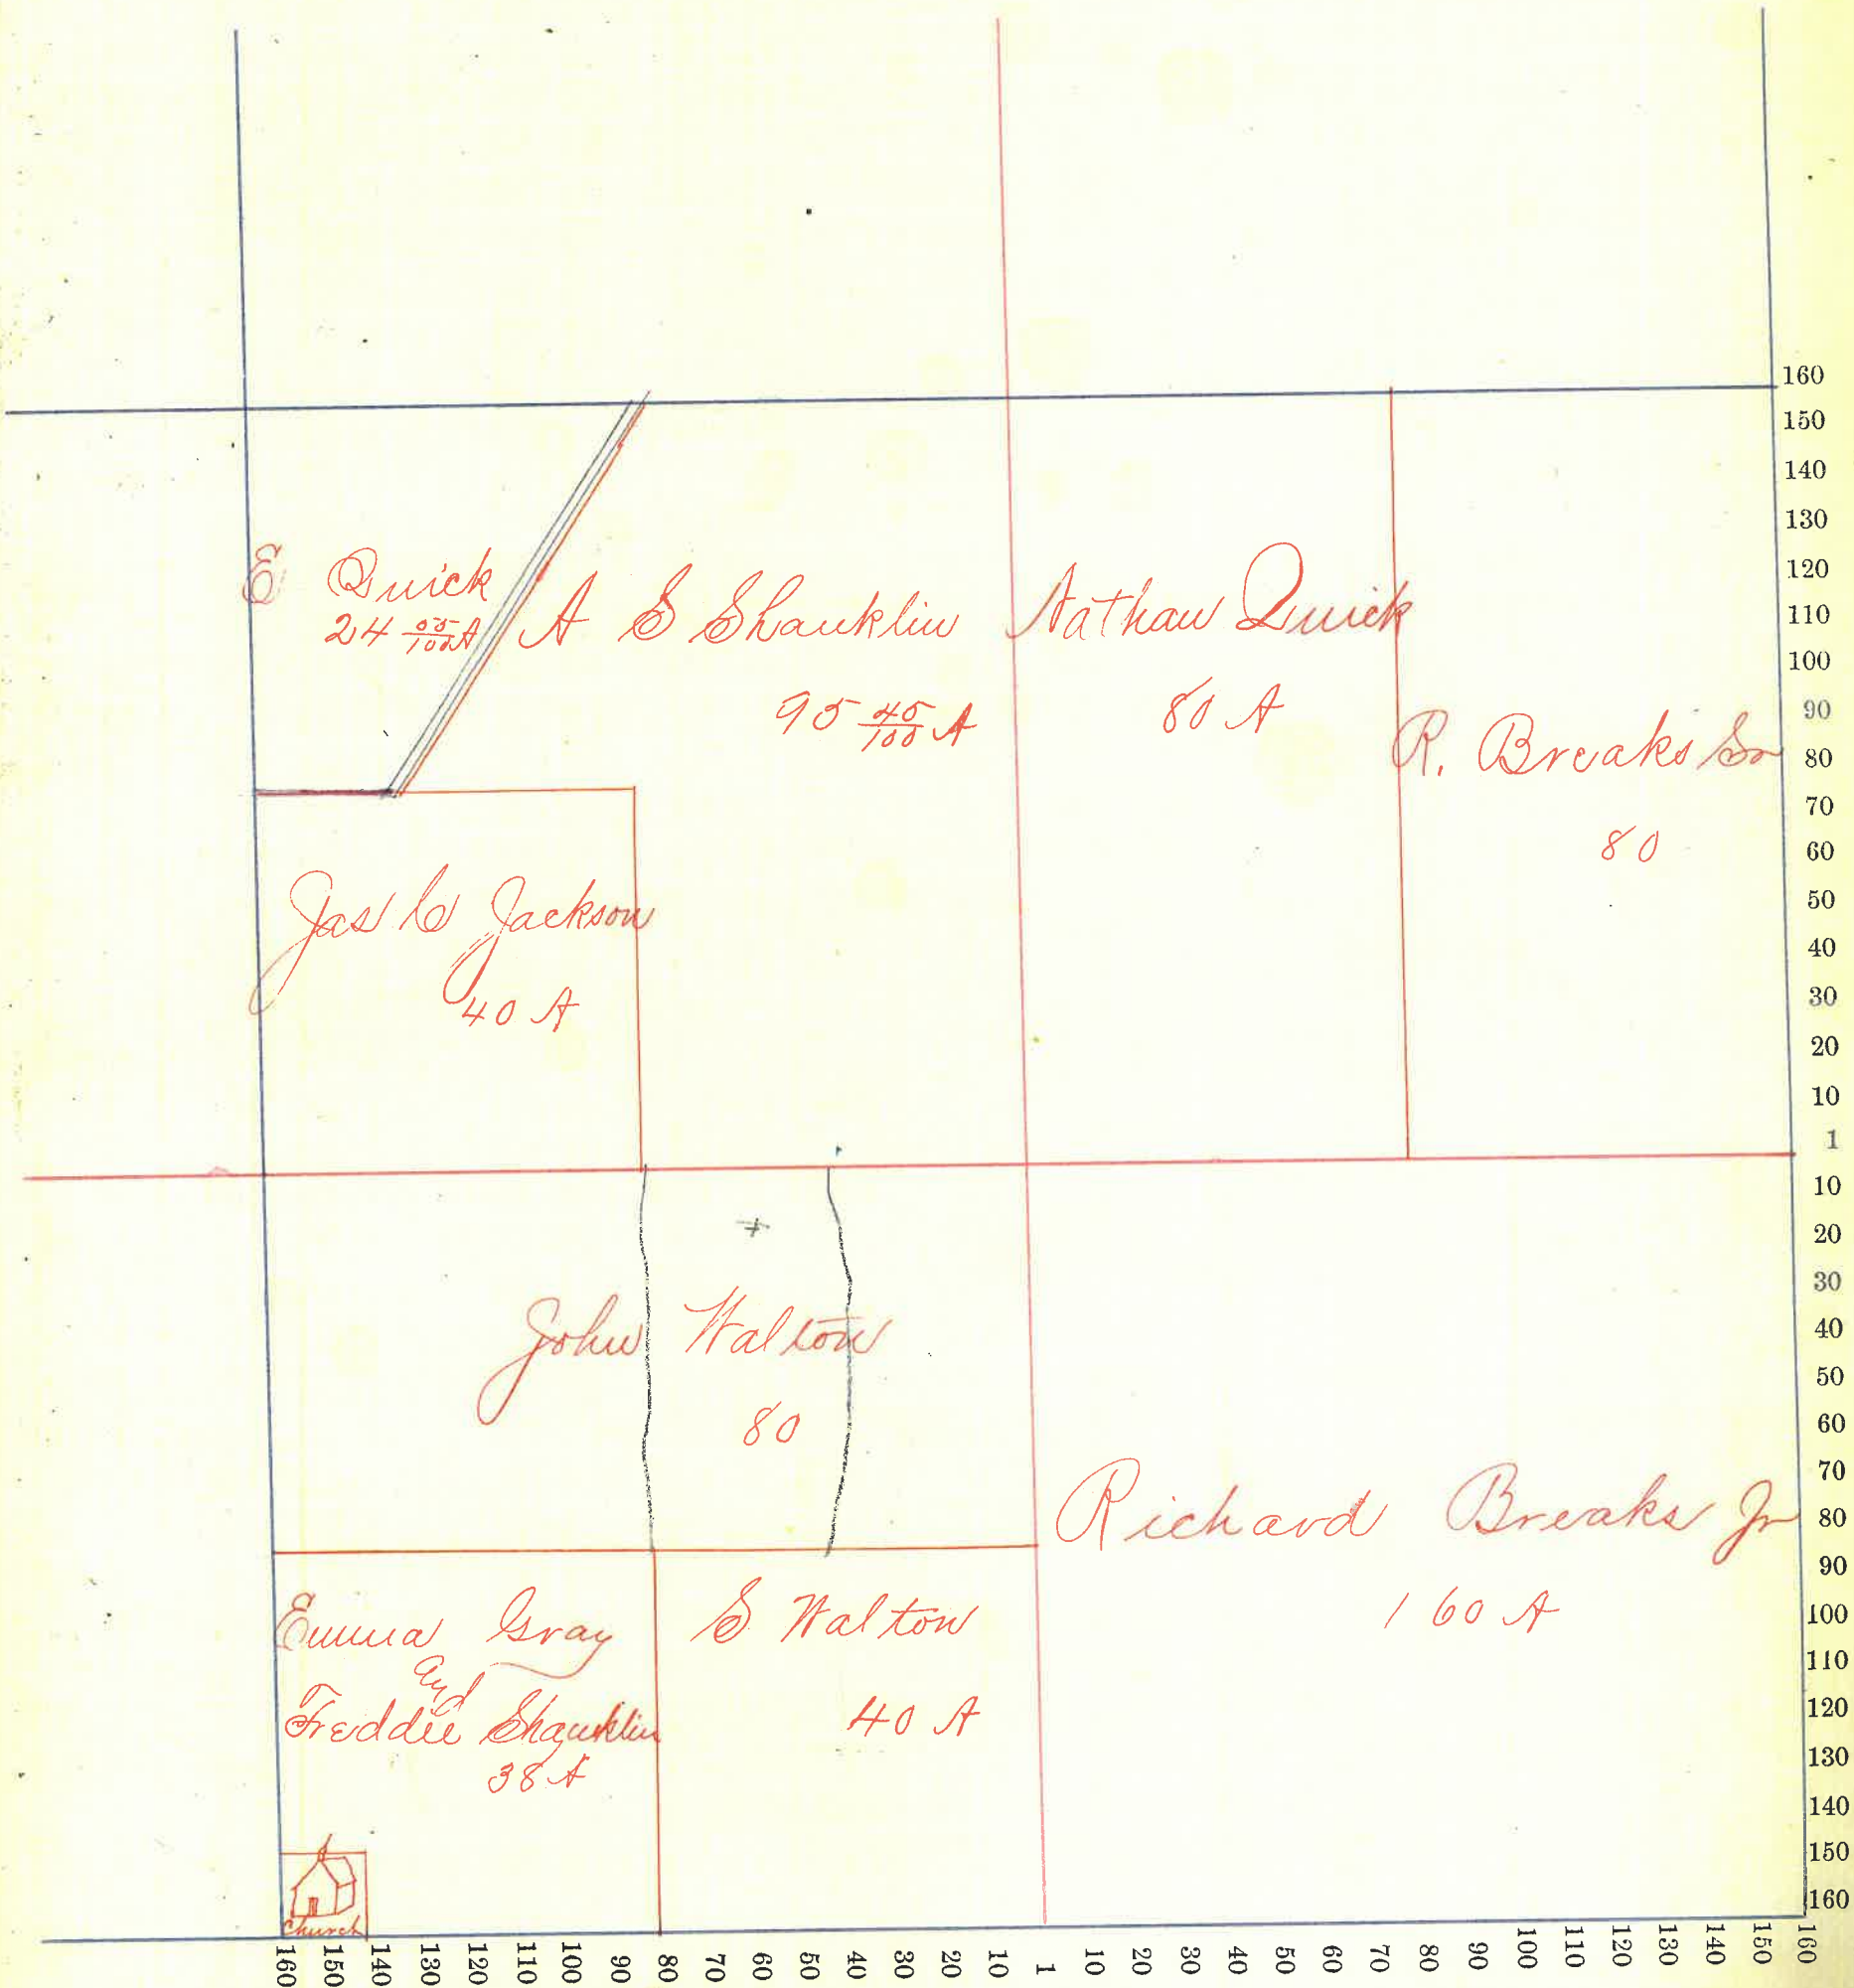 E Quick
24 55/100 A
A S Shanklin
95 45/100 A
Nathan Quick
80 A
R. Breaks Sr
80
Jas C Jackson
40 A
John Walton
80
Richard Breaks Jr
160 A
Emma Gray
and
Freddie Shanklin
38 A
S Walton
40 A
Church
160
150
140
130
120
110
100
90
80
70
60
50
40
30
20
10
1
10
20
30
40
50
60
70
80
90
100
110
120
130
140
150
160
160 150 140 130 120 110 100 90 80 70 60 50 40 30 20 10 1 10 20 30 40 50 60 70 80 90 100 110 120 130 140 150 160